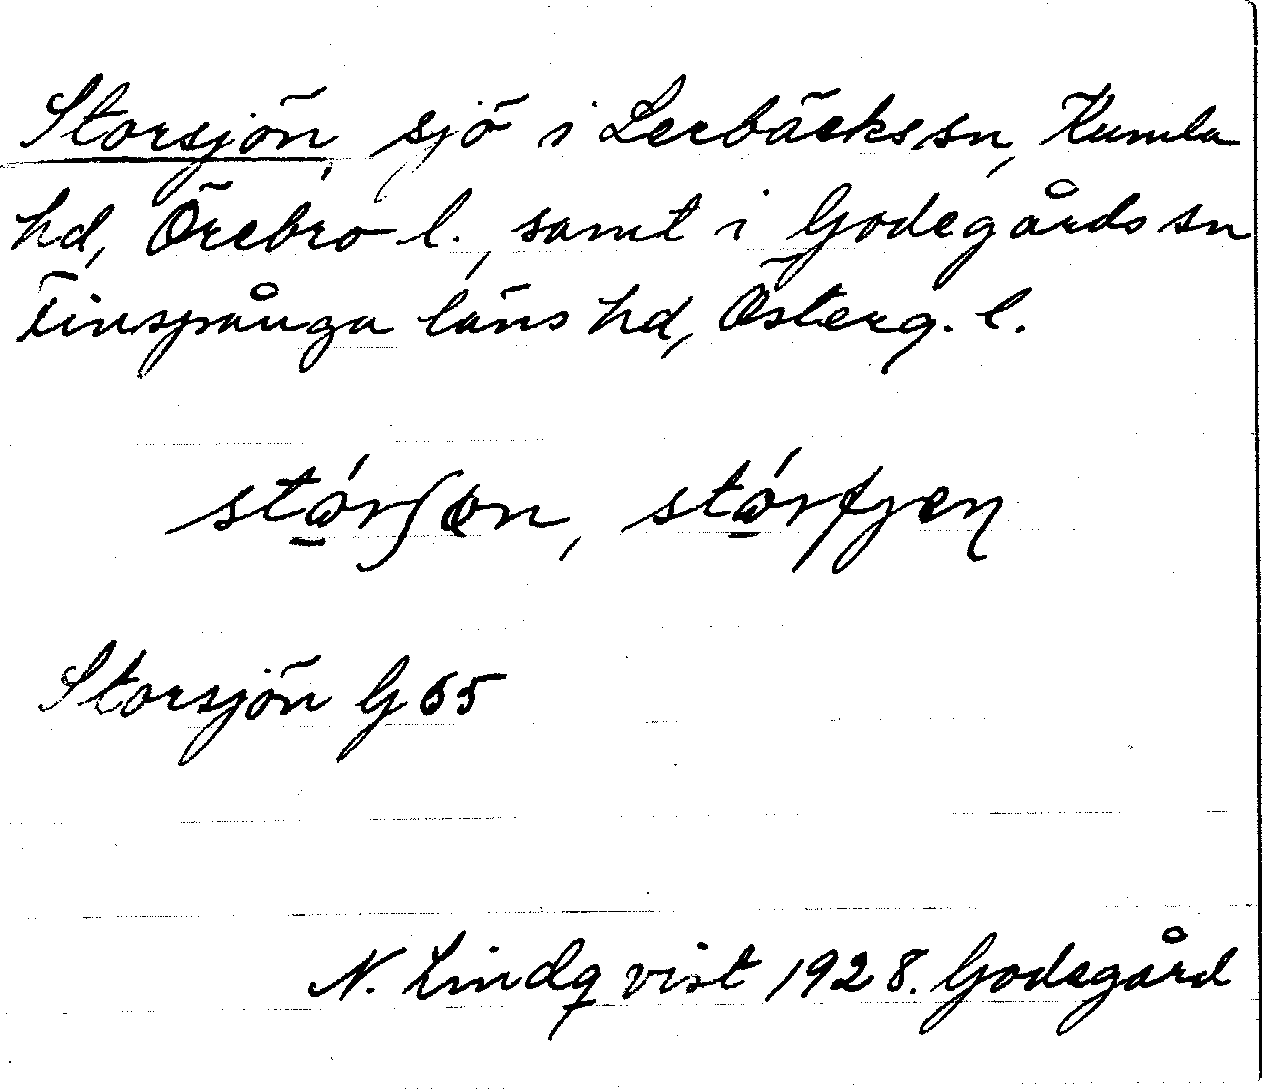 Storsjön, sjö i Lerbäcks sn, Kumla
hd, Örebro l., samt i Godegårds sn
Finspånga läns hd, Österg. l.
Storsjön G 65
N. Lindqvist 1928. Godegård